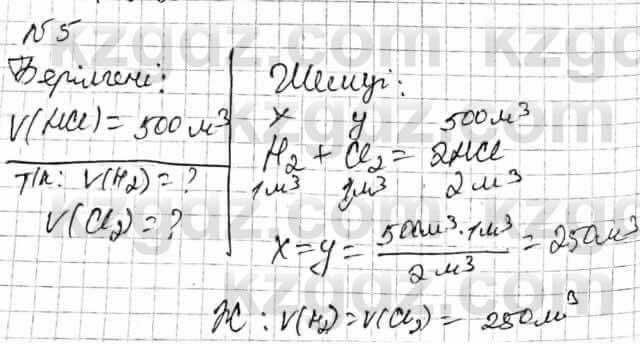 №5
Берілгені:
V(HCl) = 500м³
Т/к: V(H₂) = ?
V(Cl₂) = ?
Шешуі:
x y 500м³
H₂ + Cl₂ = 2HCl
1м³ 1м³ 2м³
x = y = 500м³·1м³ / 2м³ = 250м³
Ж: V(H₂) = V(Cl₂) = 250м³
kzgdz.com